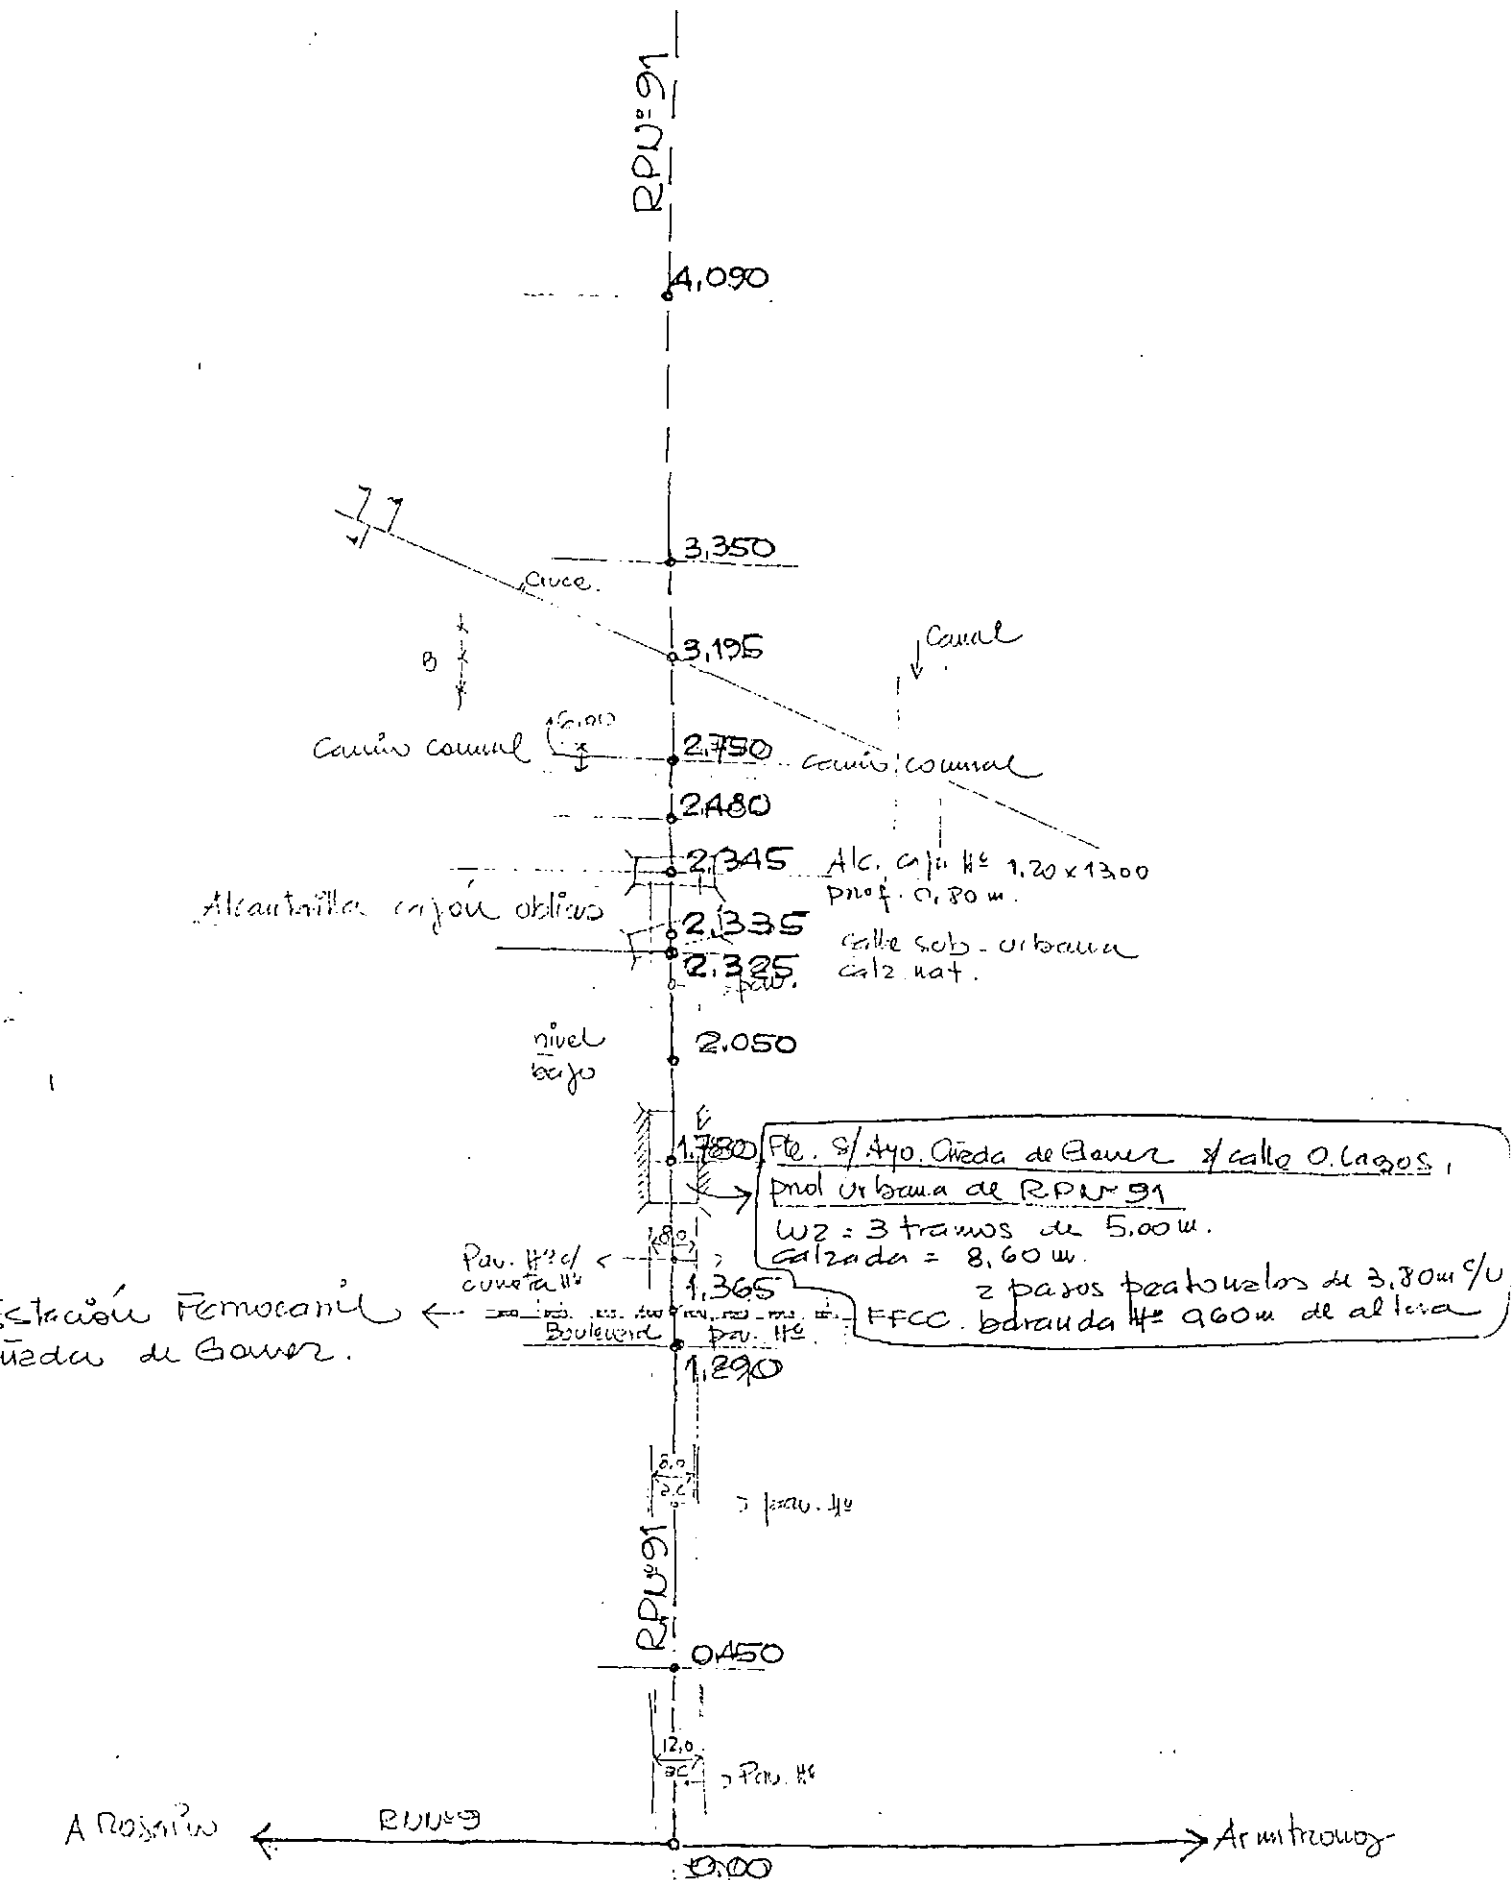 RPNº91
4,090
3,350
Cruce.
3,195
Canal
B
6,00
Camino comunal
2,750
camino comunal
2,480
2,345
Alc. cajón Hº 1,20 x 13,00
prof. 0,80 m.
Alcantarilla cajón oblicuo
2,335
calle sub-urbana
calz. nat.
2,325
pav.
nivel
bajo
2.050
1,780
Pte. s/ Ayo. Cñada de Gomez s/ calle O. Lagos,
prol urbana de RPNº91
LUZ = 3 tramos de 5,00 m.
calzada = 8,60 m.
2 pasos peatonales de 3,80m c/u
baranda Hº 0,60m de altura
8,0
Pav. Hº c/
cuneta Hº
1,365
Estación Ferrocarril
Cañada de Gomez.
FFCC.
Boulevard pav. Hº
1,290
8,0
pav. Hº
RPNº91
0,450
12,0
Pav. Hº
A Rosario
RNNº9
Armstrong
0,00